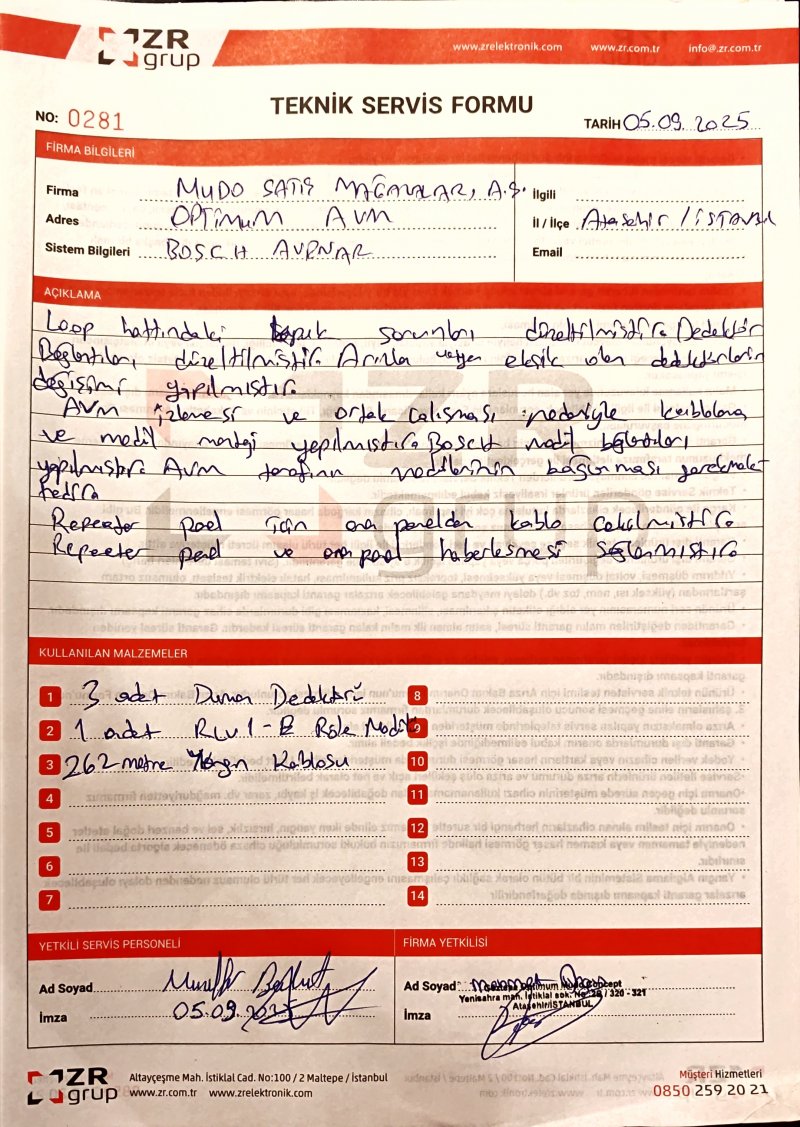 ZR grup
www.zrelektronik.com www.zr.com.tr info@zr.com.tr
TEKNİK SERVİS FORMU
NO: 0281
TARİH 05.09.2025
FİRMA BİLGİLERİ
Firma MUDO SATIŞ MAĞAZALAR, A.Ş.
Adres OPTİMUM AVM
Sistem Bilgileri BOSCH AVENAR
İlgili
İl / İlçe Ataşehir / İSTANBUL
Email
AÇIKLAMA
Loop hattındaki kopuk sorunları düzeltilmiştir. Dedektör
Bağlantıları düzeltilmiştir. Arızalı veya eksik olan dedektörlerin
değişimi yapılmıştır.
AVM izlemesi ve ortak çalışması nedeniyle kablolama
ve modül montajı yapılmıştır. BOSCH modül bağlantıları
yapılmıştır. AVM modüllerinin bağlanması gerekmek-
tedir.
Repeater panel için ana panelden kablo çekilmiştir.
Repeater panel ve ana panel haberleşmesi sağlanmıştır.
KULLANILAN MALZEMELER
1 3 adet Duman Dedektörü
2 1 adet Röle Modül
3 262 metre Yangın Kablosu
4
5
6
7
8
9
10
11
12
13
14
YETKİLİ SERVİS PERSONELİ
Ad Soyad
İmza 05.09.2025
FİRMA YETKİLİSİ
Ad Soyad
Optimum Mudo Concept
Yenisahra mah. İstiklal sok. No: / 320 - 321
Ataşehir/İSTANBUL
İmza
ZR grup
Altayçeşme Mah. İstiklal Cad. No:100 / 2 Maltepe / İstanbul
www.zr.com.tr www.zrelektronik.com
Müşteri Hizmetleri
0850 259 20 21